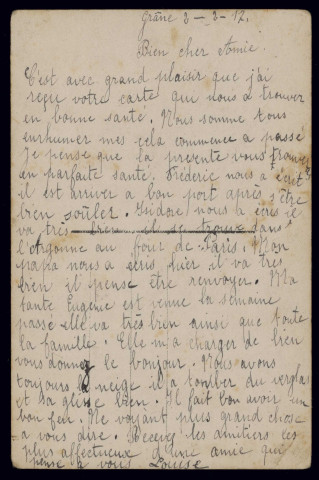 Grâne 3-3-17.
Bien cher Amie.
C'est avec grand plaisir que j'ai
reçue votre carte qui nous a trouver
en bonne santé. Nous somme tous
enrhumer mes cela commence a passé
Je pense que la presente vous trouvera
en parfaite santé. Frédéric nous a écrit
il est arriver a bon port après s'être
bien souler. Isidore nous a écris il
va très bien il se trouve dans
l'Argonne au four de Paris. Mon
papa nous a écris hier il va très
bien il pense être renvoyer. Ma
tante Eugénie est venue la semaine
passé elle va très bien ainsi que toute
la famille. Elle m'a charger de bien
vous donnez le bonjour. Nous avons
toujours la neige il a tomber du verglas
et sa glisse bien. Il fait bon avoir un
bon feu. Ne voyant plus grand chose
a vous dire. Recevez les amitiers les
plus affectueux d'une amie qui
pense a vous Louise